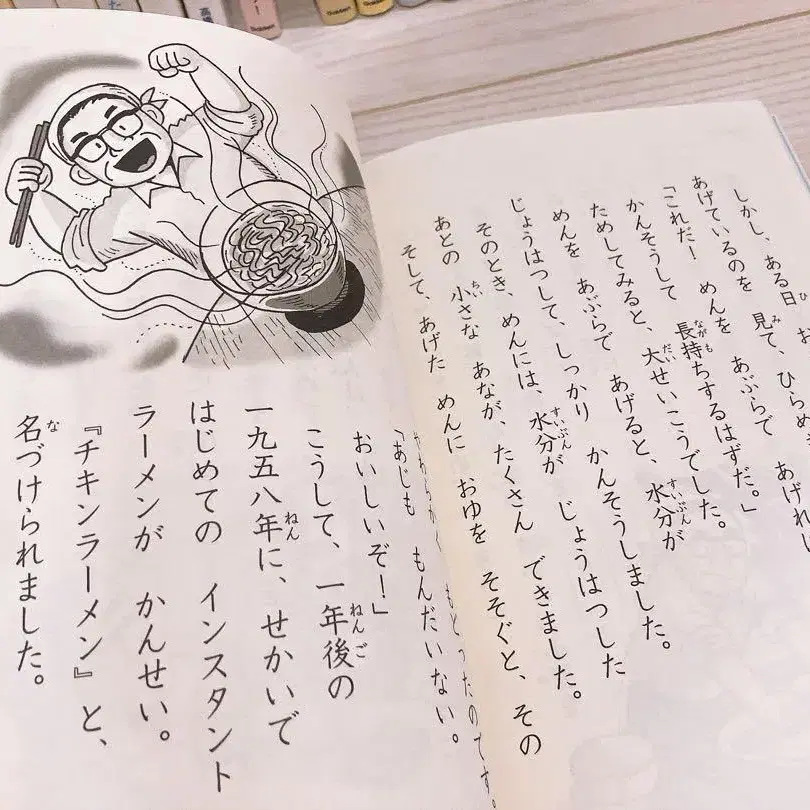 しかし、ある日 お
あげているのを 見て、ひらめ
「これだ! めんを あぶらで あげれば
かんそうして 長持ちするはずだ。」
ためしてみると、大せいこうでした。
めんを あぶらで あげると、水分が
じょうはつして、しっかり かんそうしました。
そのとき、めんには、水分が じょうはつした
あとの 小さな あなが、たくさん できました。
そして、あげた めんに おゆを そそぐと、その
もどったのです。
「あじも もんだいない。
おいしいぞ!」
こうして、一年後の
一九五八年に、せかいで
はじめての インスタント
ラーメンが かんせい。
『チキンラーメン』と、
名づけられました。